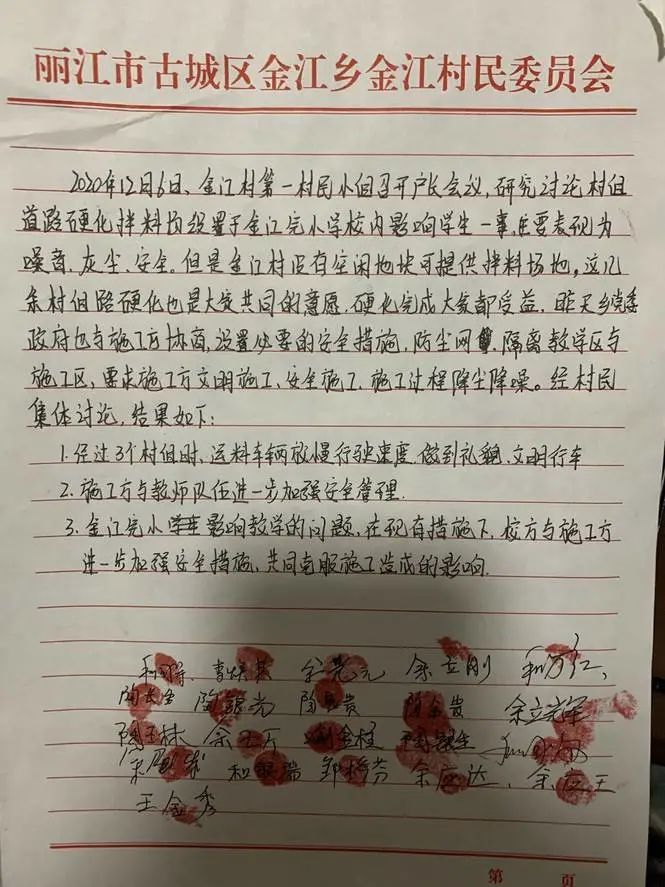 丽江市古城区金江乡金江村民委员会
2020年12月6日、金江村第一村民小组召开户长会议，研究讨论村组
道路硬化拌料场设置于金江完小学校内影响学生一事，主要表现为
噪音、灰尘、安全。但是金江村没有空闲地块可提供拌料场地。这几
条村组路硬化也是大家共同的意愿，硬化完成大家都受益，昨天乡党委
政府也与施工方协商，设置必要的安全措施，防尘网，隔离教学区与
施工区，要求施工方文明施工、安全施工、施工过程降尘降噪。经村民
集体讨论，结果如下：
1.经过3个村组时，送料车辆放慢行驶速度，做到礼貌、文明行车
2.施工方与教师队伍进一步加强安全管理.
3.金江完小影响教学的问题，在现有措施下，校方与施工方
进一步加强安全措施，共同克服施工造成的影响.
余立刚 和万红、
陶长生 陶银光 陶贵 余立辉
陶玉林 余玉万 金枝
和银瑞 余应达、余应王
王金秀
第 页